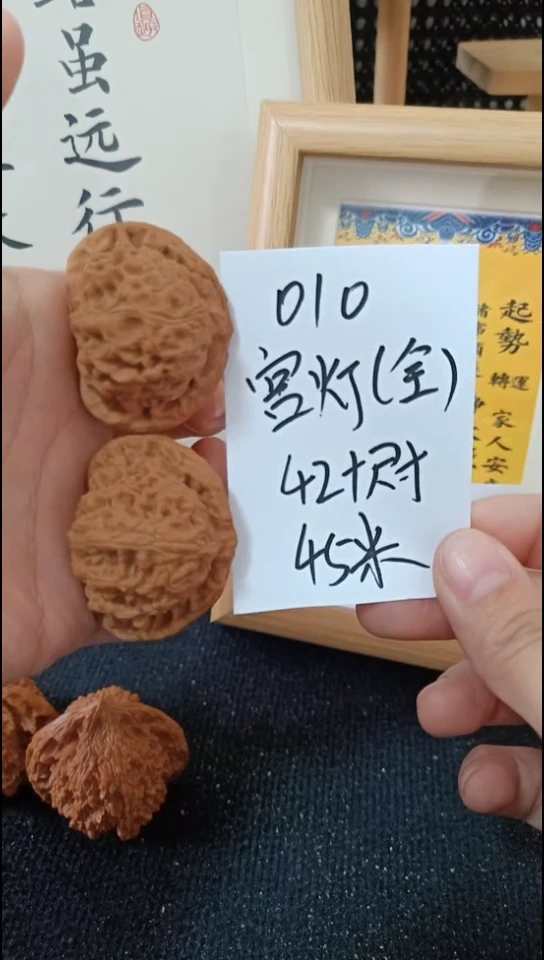 虽远行
010
宫灯(全)
42+尺寸
45米
起勢
轉運
家人安